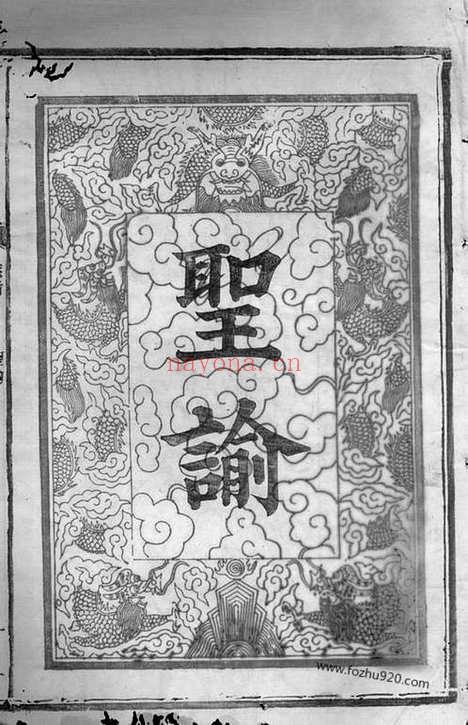 聖
諭
nayona.cn
www.fozhu920.com